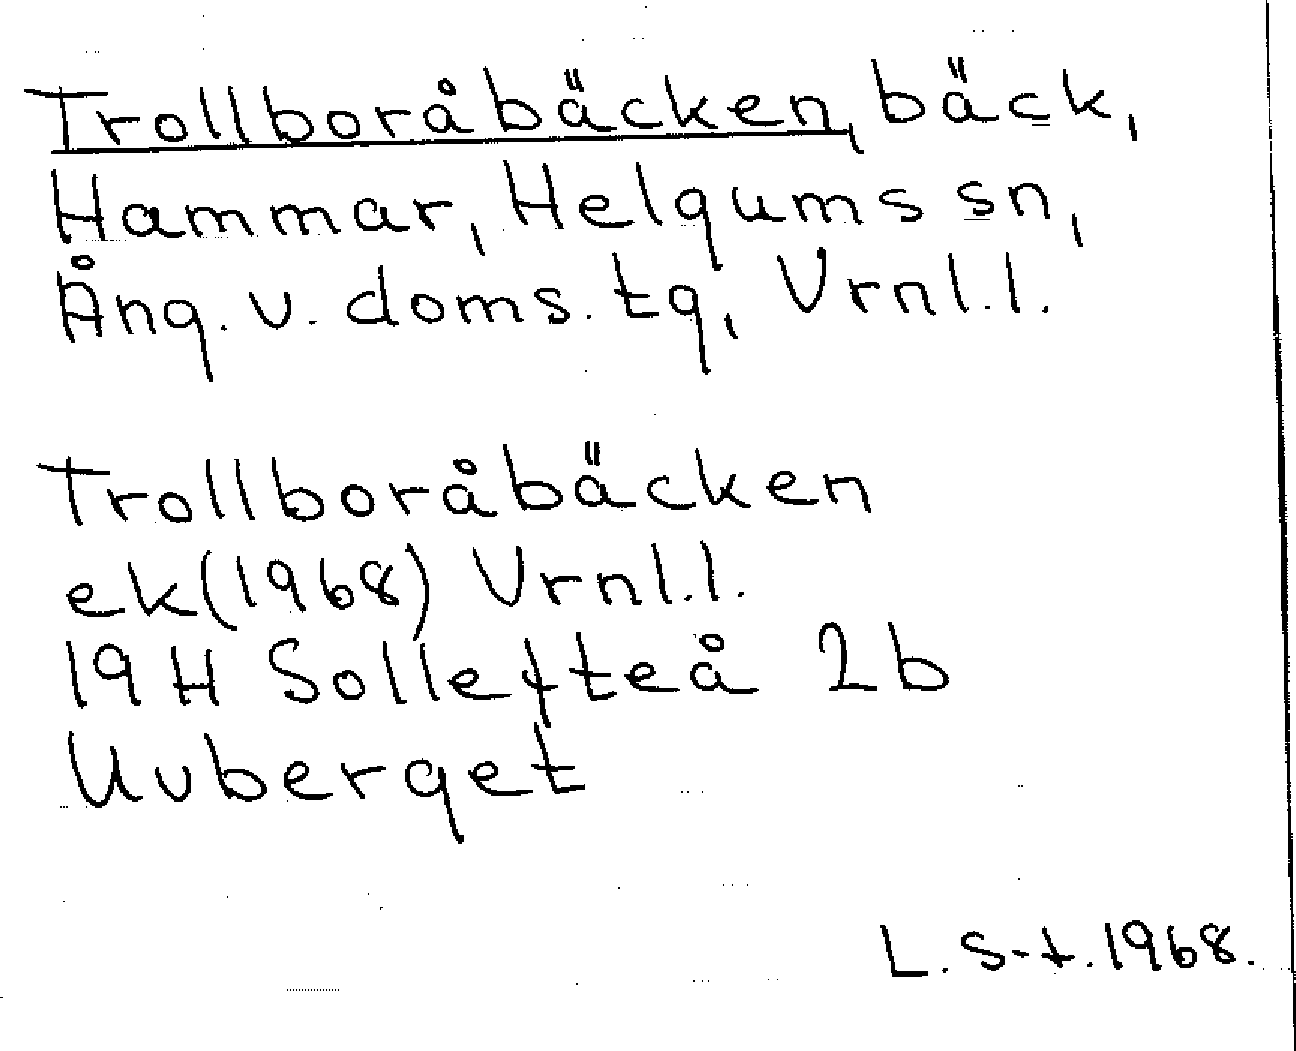 Trollboråbäcken, bäck,
Hammar, Helgums sn,
Ång. v. doms. tg, Vrnl.l.
Trollboråbäcken
ek (1968) Vrnl.l.
19 H Sollefteå 2b
Uvberget
L. S-t. 1968.